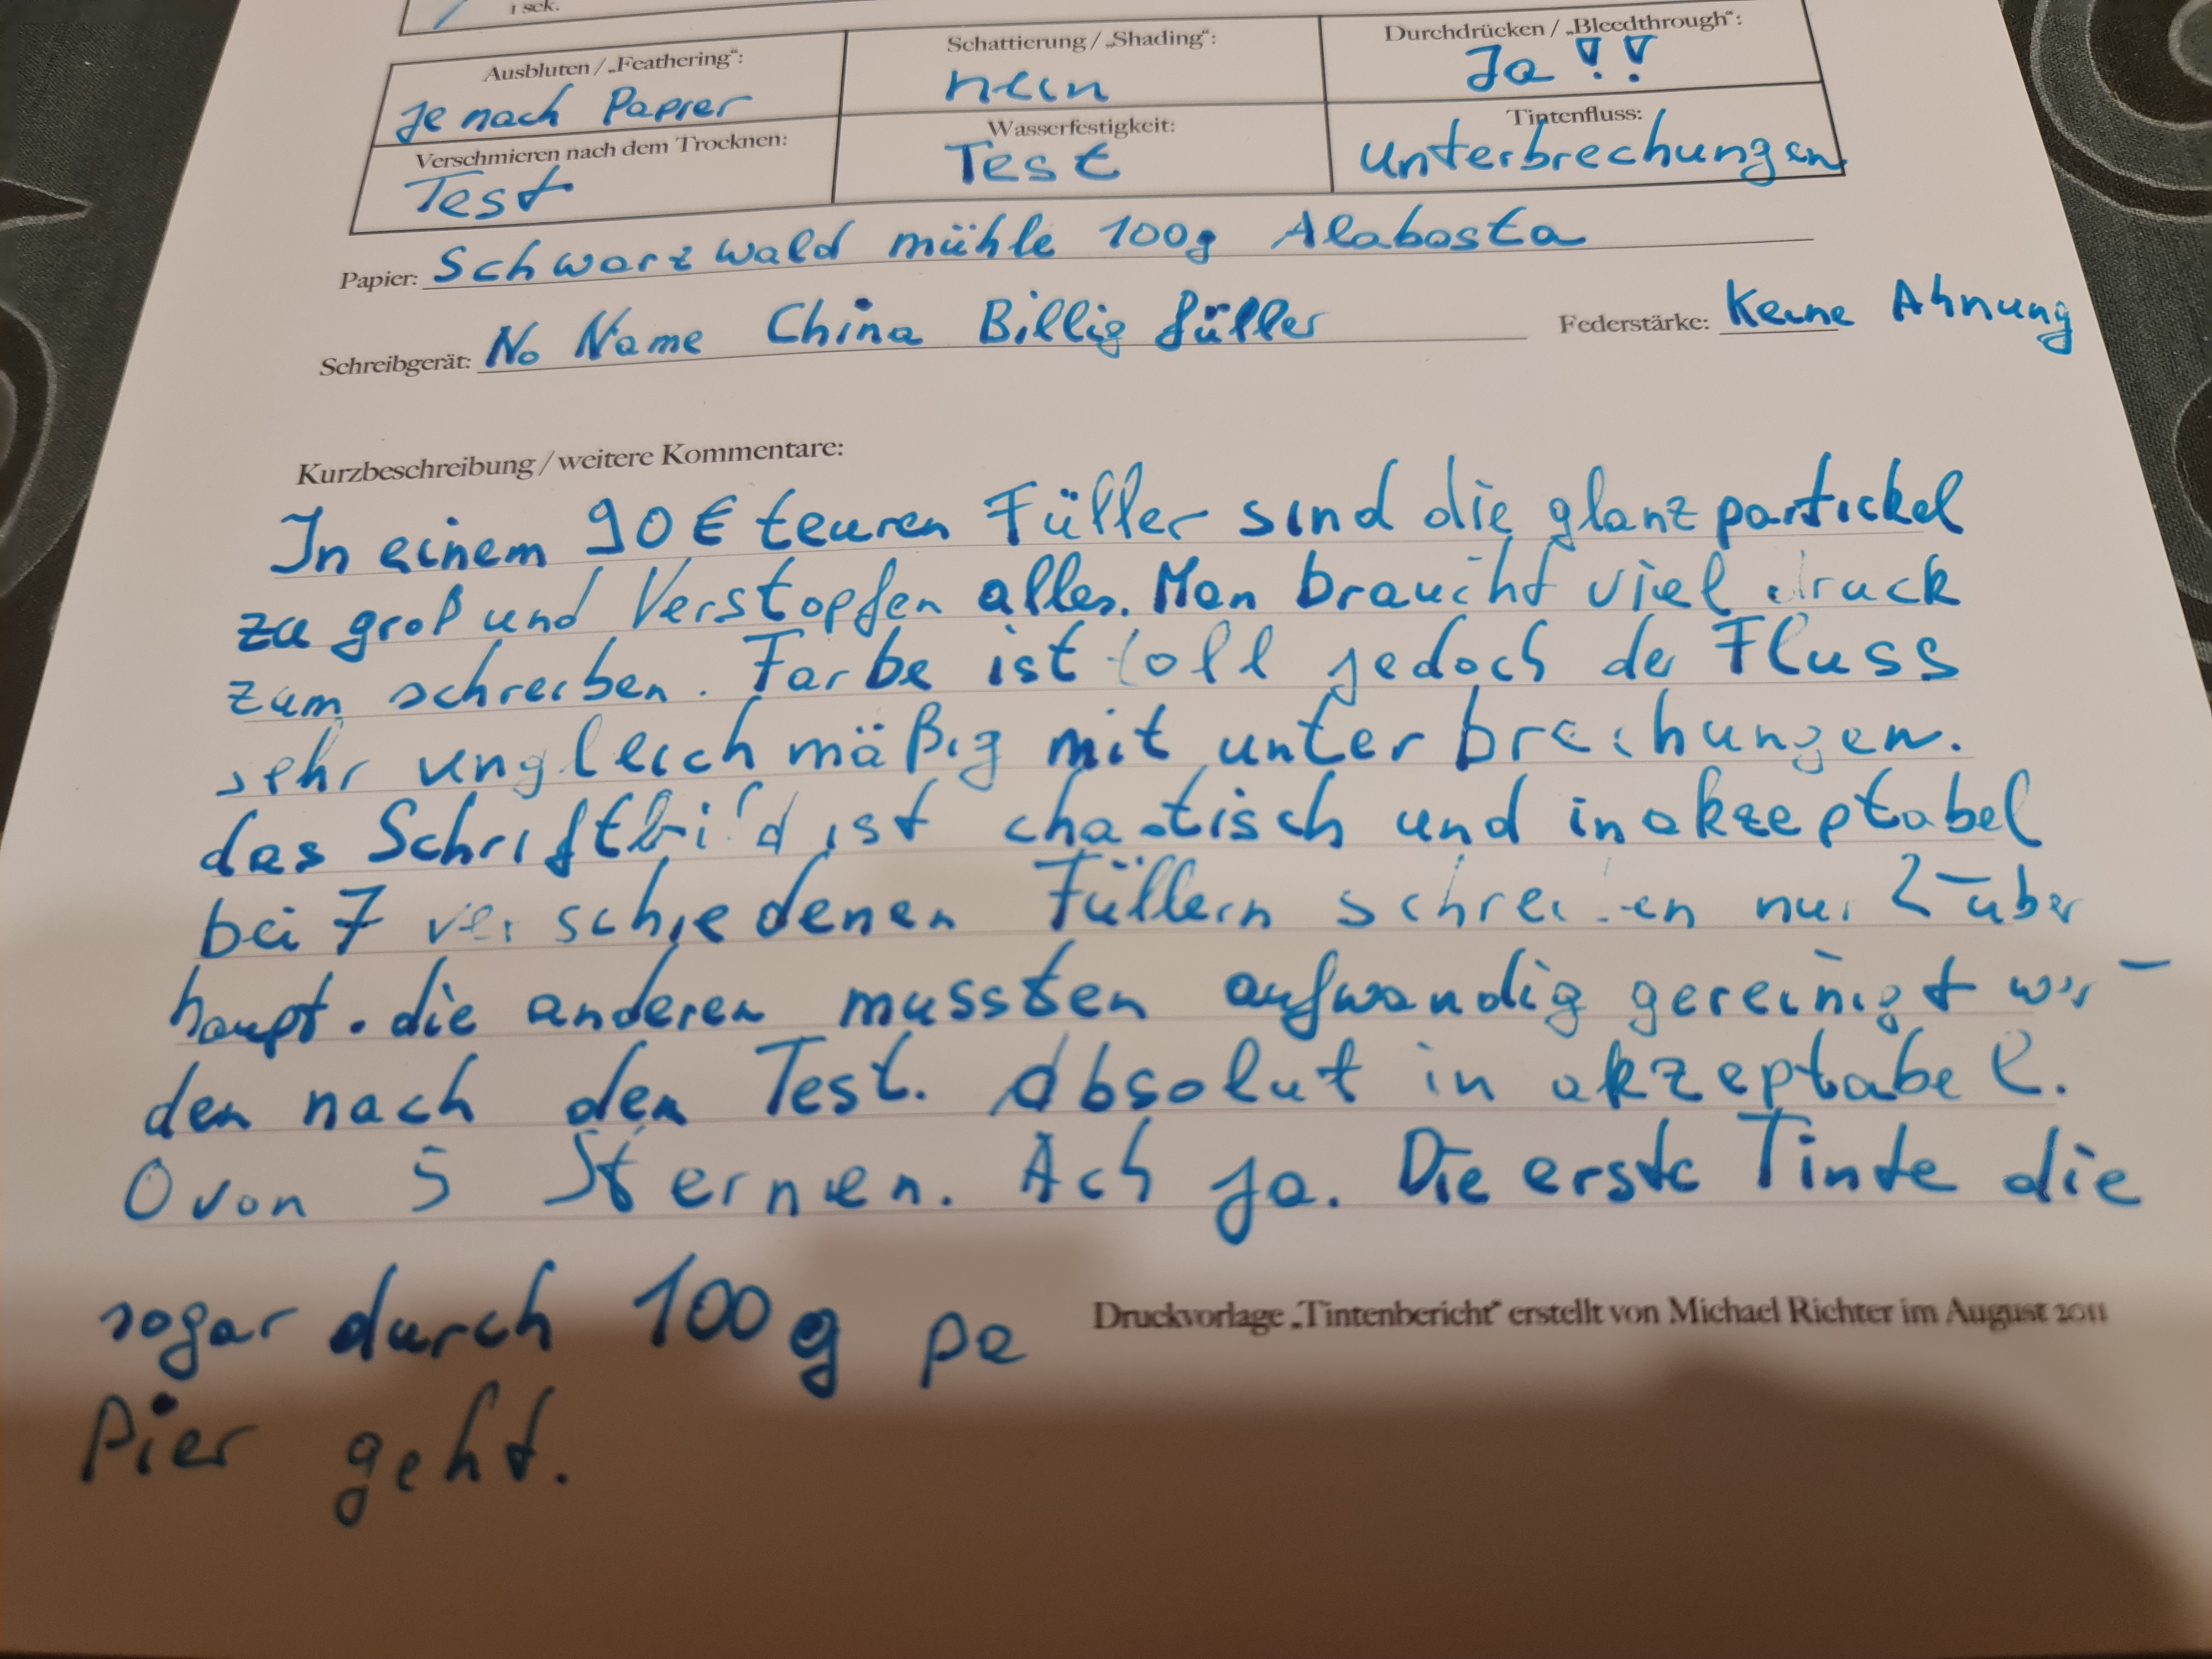 1 sek.
Ausbluten / „Feathering“:
Schattierung / „Shading“:
Durchdrücken / „Bleedthrough“:
Je nach Papier
nein
Ja !!
Verschmieren nach dem Trocknen:
Wasserfestigkeit:
Tintenfluss:
Test
Test
unterbrechungen
Papier: Schwarz wald mühle 100g Alabasta
Schreibgerät: No Name China Billig füller Federstärke: Keine Ahnung
Kurzbeschreibung / weitere Kommentare:
In einem 90€ teuren Füller sind die glanz partickel
zu groß und Verstopfen alles. Man braucht viel druck
zum schreiben. Farbe ist toll jedoch der Fluss
sehr ungleich mäßig mit unter brechungen.
das Schriftbild ist chaotisch und inakzeptabel
bei 7 verschiedenen Füllern schreiben nur 2 über
haupt. die anderen mussten aufwandig gereinigt wer-
den nach den Test. Absolut in akzeptabel.
0 von 5 Sternen. Ach ja. Die erste Tinte die
sogar durch 100 g pa
Pier geht.
Druckvorlage „Tintenbericht“ erstellt von Michael Richter im August 2011